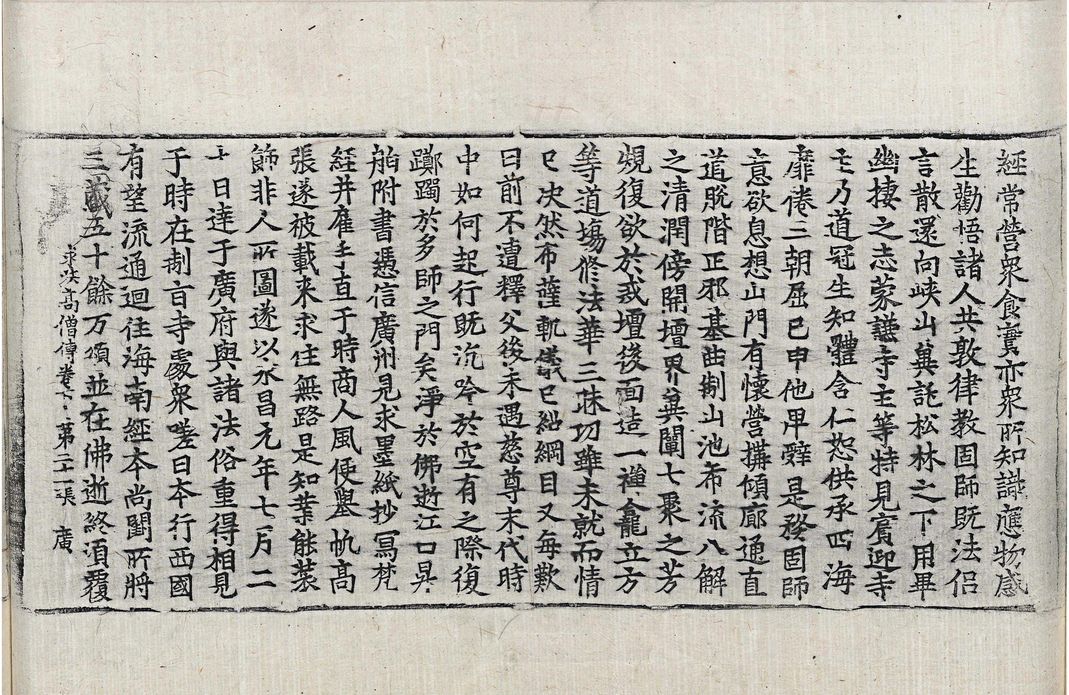 經常營衆食實亦衆所知識應物感
生勸悟諸人共敦律教固師旣法侶
言散還向峽山冀託松林之下用畢
幽棲之志蒙謙寺主等特見賓迎寺
主乃道冠生知體含仁恕供承四海
靡倦二朝屈己申他卑辭是務固師
意欲息想山門有懷營搆傾廊通直
道脫階正邪基曲制山池希流八解
之淸潤傍開壇界冀闡七聚之芳
規復欲於戒壇後面造一禪龕立方
等道場修法華三昧功雖未就而情
已決然布薩軌儀已紹綱目又每歎
曰前不遭釋父後未遇慈尊末代時
中如何起行旣沉吟於空有之際復
躑躅於多師之門矣淨於佛逝江口昇
舶附書憑信廣州見求墨紙抄寫梵
經幷雇手直于時商人風便擧帆高
張遂被載來求住無路是知業能裝
飾非人所圖遂以永昌元年七月二
十日達于廣府與諸法俗重得相見
于時在制旨寺處衆嗟曰本行西國
有望流通迴住海南經本尚闕所將
三藏五十餘万頌並在佛逝終湏覆
求法高僧傳卷下 第二十一張 廣